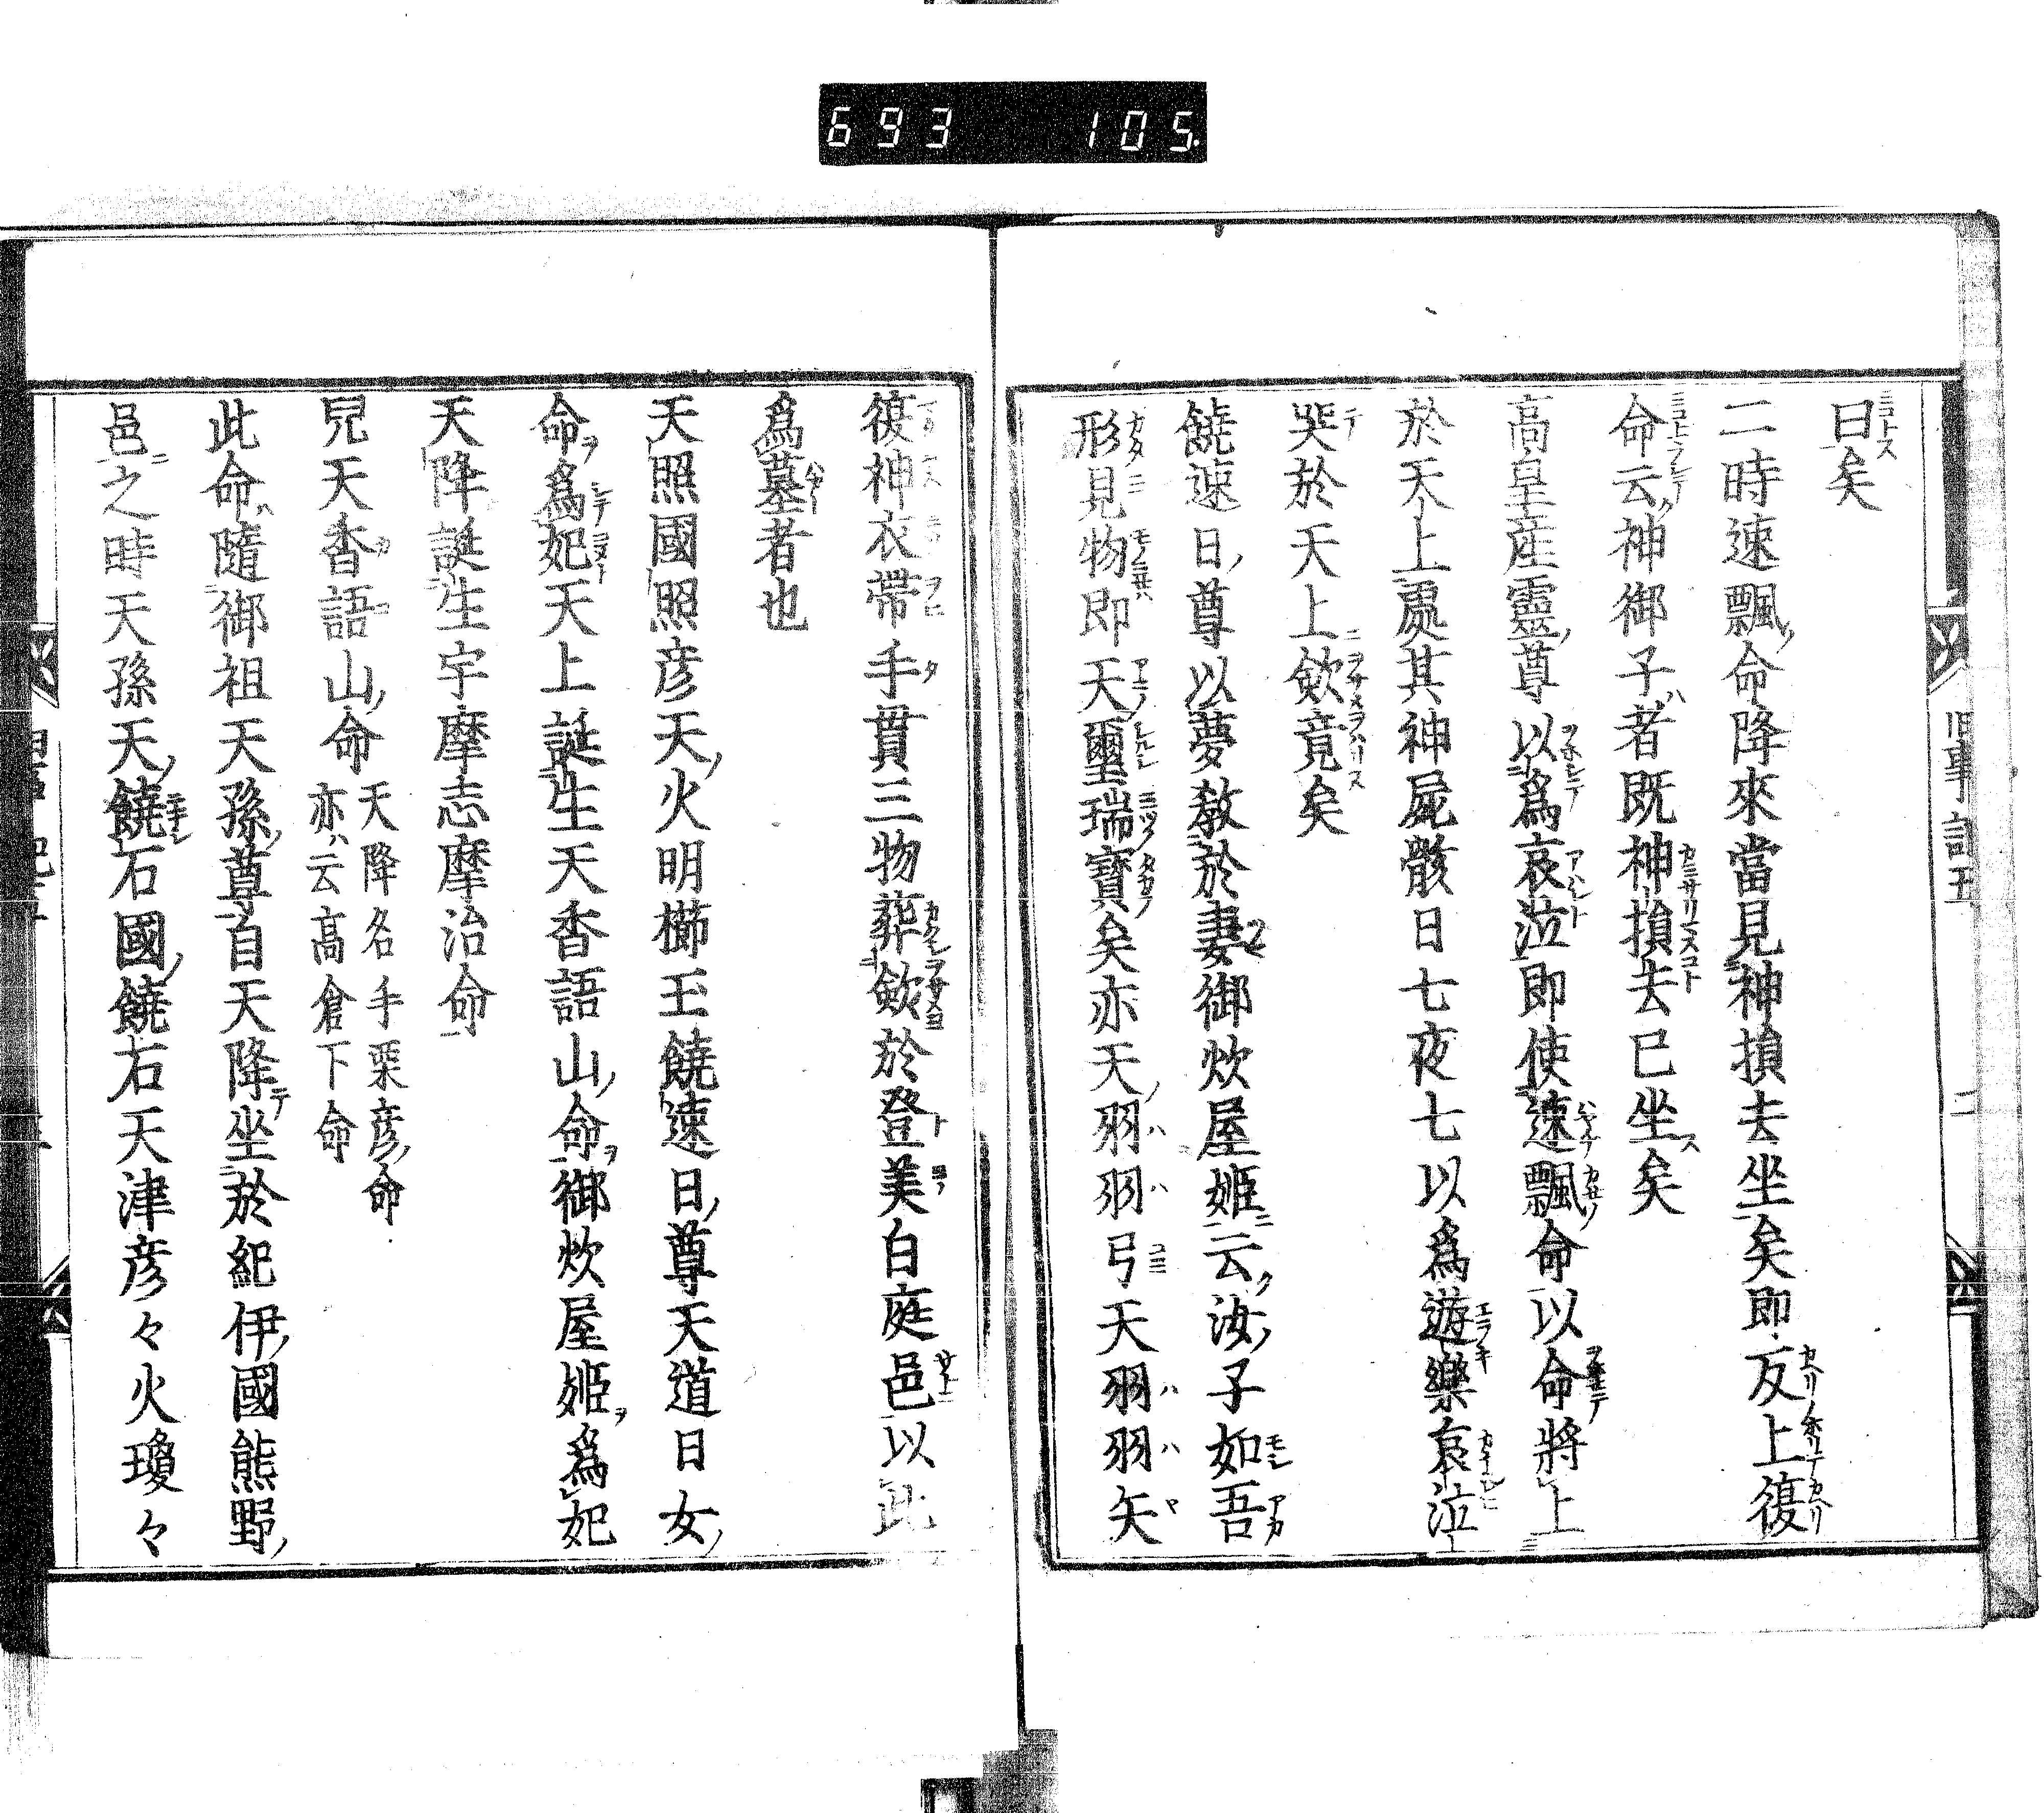 693 105
曰矣
二時速飄命降來當見神損去坐矣即反上復
命云神御子者既神損去已坐矣
高皇産靈尊以爲哀泣即使速飄命以命將上
於天上處其神屍骸日七夜七以爲遊樂哀泣
哭於天上斂竟矣
饒速日尊以夢教於妻御炊屋姫云汝子如吾
形見物即天璽瑞寶矣亦天羽羽弓天羽羽矢
復神衣帶手貫三物葬斂於登美白庭邑以此
爲墓者也
天照國照彦天火明櫛玉饒速日尊天道日女
命爲妃天上誕生天香語山命御炊屋姫爲妃
天降誕生宇摩志摩治命
兒天香語山命
天降名手栗彦命
亦云高倉下命
此命隨御祖天孫尊自天降坐於紀伊國熊野
邑之時天孫天饒石國饒石天津彦々火瓊々